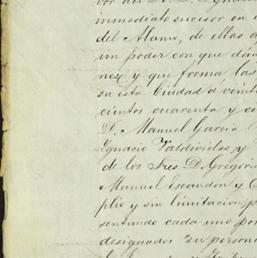 inmediato sucesor en
del Alamo, de ellas
un poder con que
nex y que forma las
en esta Ciudad a veint
cientos cuarenta y c
D. Manuel Garcia
Ignacio Valdivielso y
de los Sres. D. Gregori
Manuel Escandon y
plio y sin limitacion p
sentando cada uno por
designados su persona